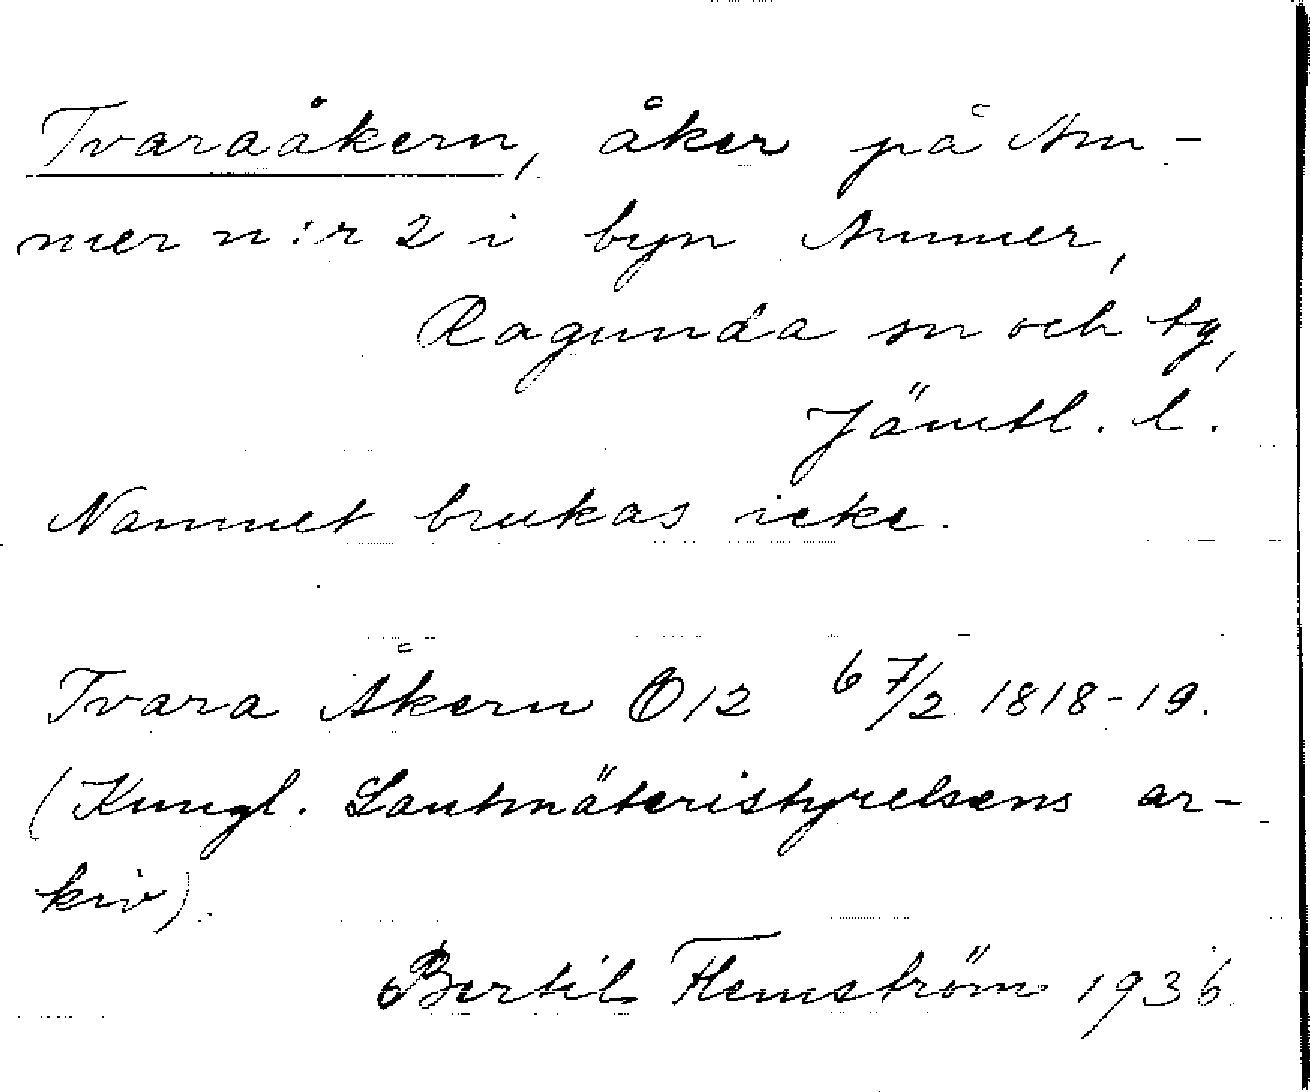 Tvaraåkern, åker på Am-
mer n:r 2 i byn Ammer,
Ragunda sn och tg,
Jämtl. l.
Namnet brukas icke.
Tvara Åkern Ö12 67/2 1818-19.
(Kungl. Lantmäteristyrelsens ar-
kiv).
Bertil Flemström 1936